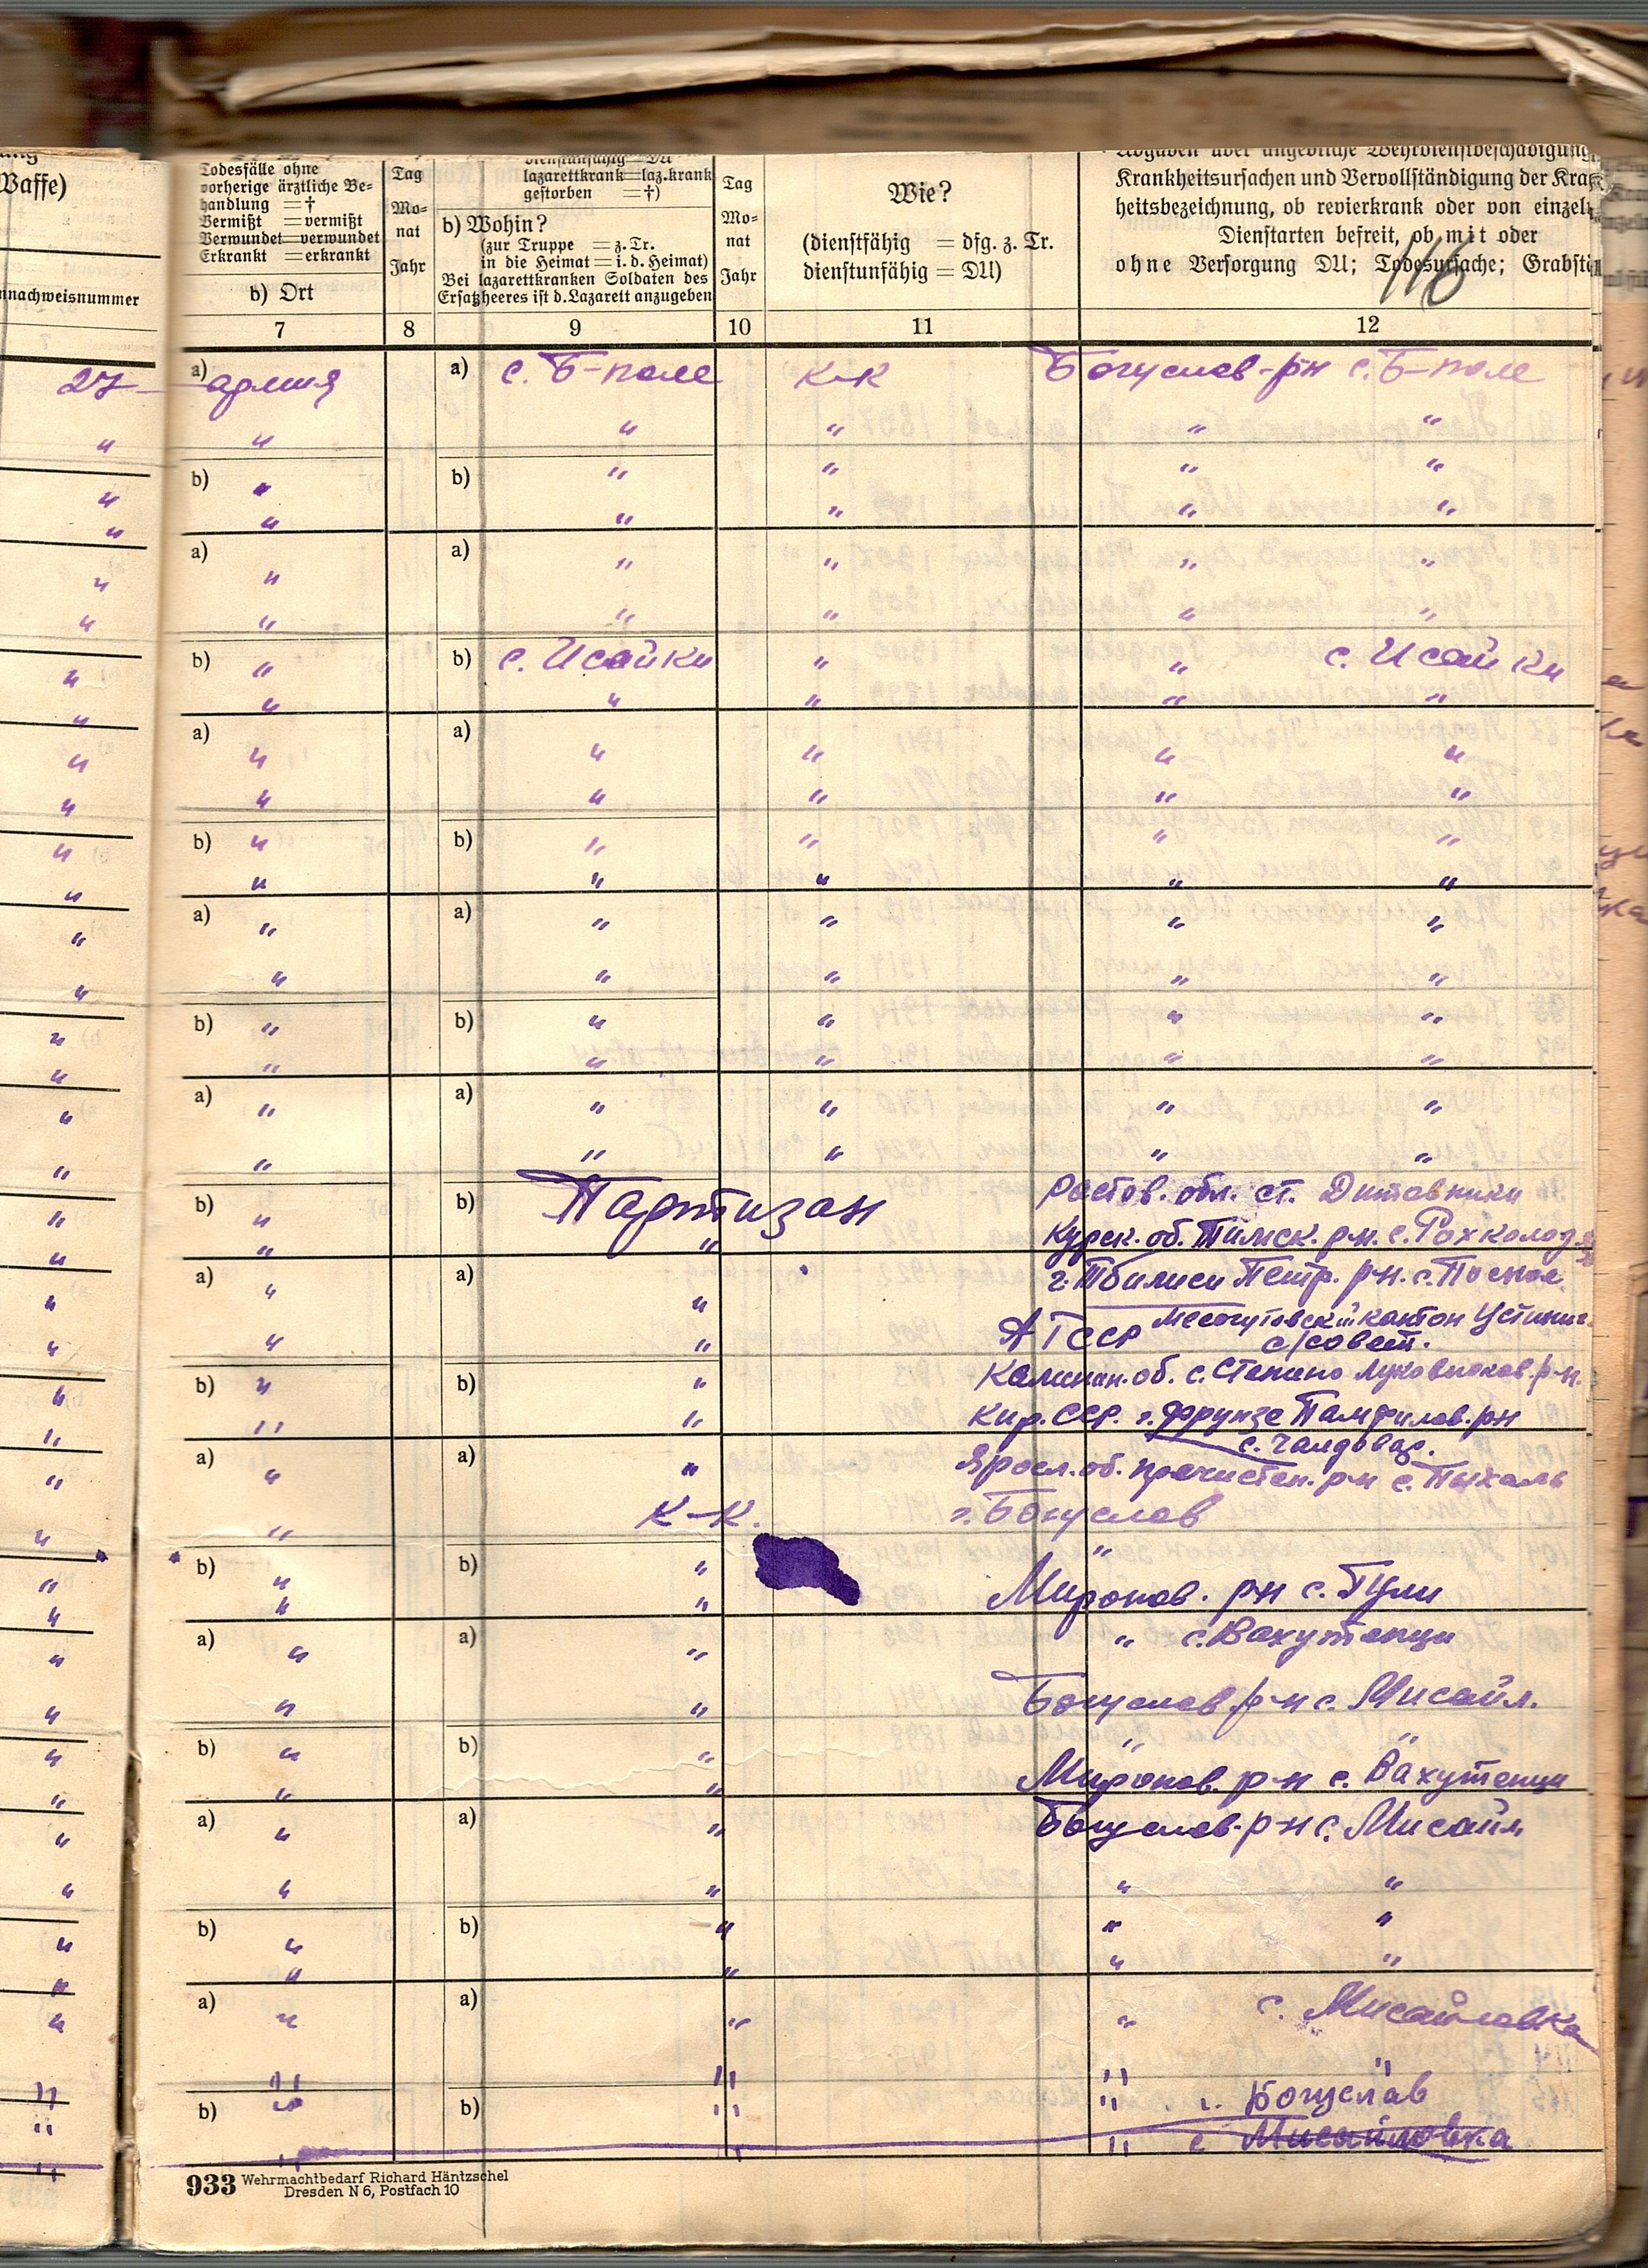 Waffe)
nnachweisnummer
Todesfälle ohne
vorherige ärztliche Be=
handlung = †
Vermißt = vermißt
Verwundet = verwundet
Erkrankt = erkrankt
b) Ort
Tag
Mo=
nat
Jahr
dienstunfähig = DU
lazarettkrank = laz.krank
gestorben = †)
b) Wohin?
(zur Truppe = z. Tr.
in die Heimat = i. d. Heimat)
Bei lazarettkranken Soldaten des
Ersatzheeres ist d. Lazarett anzugeben
Tag
Mo=
nat
Jahr
Wie?
(dienstfähig = dfg. z. Tr.
dienstunfähig = DU)
Angaben über angebliche Wehrdienstbeschädigung,
Krankheitsursachen und Vervollständigung der Kran
heitsbezeichnung, ob revierkrank oder von einzel
Dienstarten befreit, ob mit oder
ohne Versorgung DU; Todesursache; Grabst
116
7 8 9 10 11 12
27 a) армия a) с. Б-поле К-К Богуслав-рн с. Б-поле
" " " " " "
" b) " b) " " " "
" " " " " "
" a) " a) " " " "
" " " " " "
" b) " b) с. Исайки " " с. Исайки
" " " " " "
" a) " a) " " " "
" " " " " "
" b) " b) " " " "
" " " " " "
" a) " a) " " " "
" " " " " "
" b) " b) " " " "
" " " " " "
" a) " a) " " " "
" " " " " "
" b) " b) Партизан Ростов. обл. ст.
" " " Курск. об. Тимск. р-н. с.
" a) " a) " г. Тбилиси Петр. р-н. с.
" " " А ТССР кантон
с/совет.
" b) " b) " Калинин. об. с. Степино р-н.
" " " Кир. ССР. г. Фрунзе Памфилов. рн
с. Чалдовар.
" a) " a) " Яросл. об. пречистен. р-н с. Пыхаль
" " К-К. г. Богуслав
" b) " b) " "
" " " Миронов. рн с. Тули
" a) " a) " " с. Вахутенци
" " " Богуслав р-н с. Мисайл.
" b) " b) " " "
" " " Миронов. р-н с. Вахутенци
" a) " a) " Богуслав. р-н с. Мисайл
" " " " "
" b) " b) " " "
" " " " "
" a) " a) " " с. Мисайловка
" " " " "
" b) " b) " " г. Богуслав
" " " " с Мисайловка
933 Wehrmachtbedarf Richard Häntzschel
Dresden N 6, Postfach 10